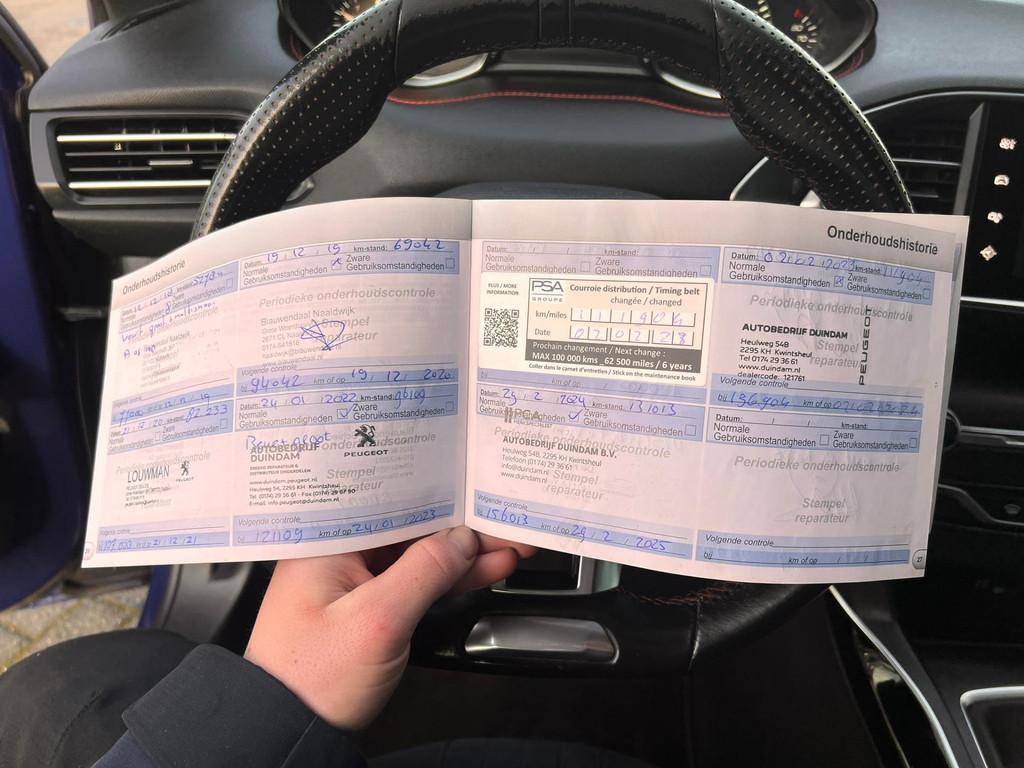 Onderhoudshistorie
Normale
Gebruiksomstandigheden
Volgende controle
Datum: 19, 12, 19 km-stand: 69042
Normale
Gebruiksomstandigheden
Zware
Gebruiksomstandigheden
Periodieke onderhoudscontrole
Blauwendal Naaldwijk
Stempel
reparateur
Volgende controle
bij 94042 km of op 19, 12, 2020
21, 12, 20 82 233
Gebruiksomstandigheden
LOUWMAN
PEUGEOT
Volgende controle
Datum: 24, 01, 2022
Normale
Gebruiksomstandigheden
Zware
Gebruiksomstandigheden
Periodieke onderhoudscontrole
AUTOBEDRIJF
DUINDAM
ERKEND REPARATEUR &
DISTRIBUTEUR ONDERDELEN
PEUGEOT
www.duindam.peugeot.nl
Heulweg 54, 2295 KH Kwintsheul
E-mail: info.peugeot@duindam.nl
Stempel
reparateur
Volgende controle
bij 121109 km of op 24, 01, 2023
Datum: km-stand:
PLUS / MORE
INFORMATION
PSA
GROUPE
Courroie distribution / Timing belt
changée / changed
km/miles 111904
Date 020223
Prochain changement / Next change :
MAX 100 000 kms 62 500 miles / 6 years
Coller dans le carnet d'entretien / Stick on the maintenance book
Datum: 29, 2, 2024 131013
Normale
Gebruiksomstandigheden
Zware
Gebruiksomstandigheden
Periodieke onderhoudscontrole
AUTOBEDRIJF DUINDAM B.V.
Heulweg 54B, 2295 KH Kwintsheul
Telefoon (0174) 29 36 61
info@duindam.nl
www.duindam.nl
Stempel
reparateur
Volgende controle
bij 156013 km of op 29, 2, 2025
Onderhoudshistorie
Datum: 02, 02, 2023 km-stand: 111904
Normale
Gebruiksomstandigheden
Zware
Gebruiksomstandigheden
Periodieke onderhoudscontrole
AUTOBEDRIJF DUINDAM
Heulweg 54B
2295 KH Kwintsheul
Tel 0174 29 36 61
www.duindam.nl
dealercode: 121761
PEUGEOT
Stempel
reparateur
Volgende controle
bij 136.904 km of op
Datum: km-stand:
Normale
Gebruiksomstandigheden
Zware
Gebruiksomstandigheden
Periodieke onderhoudscontrole
Stempel
reparateur
Volgende controle
bij km of op
27